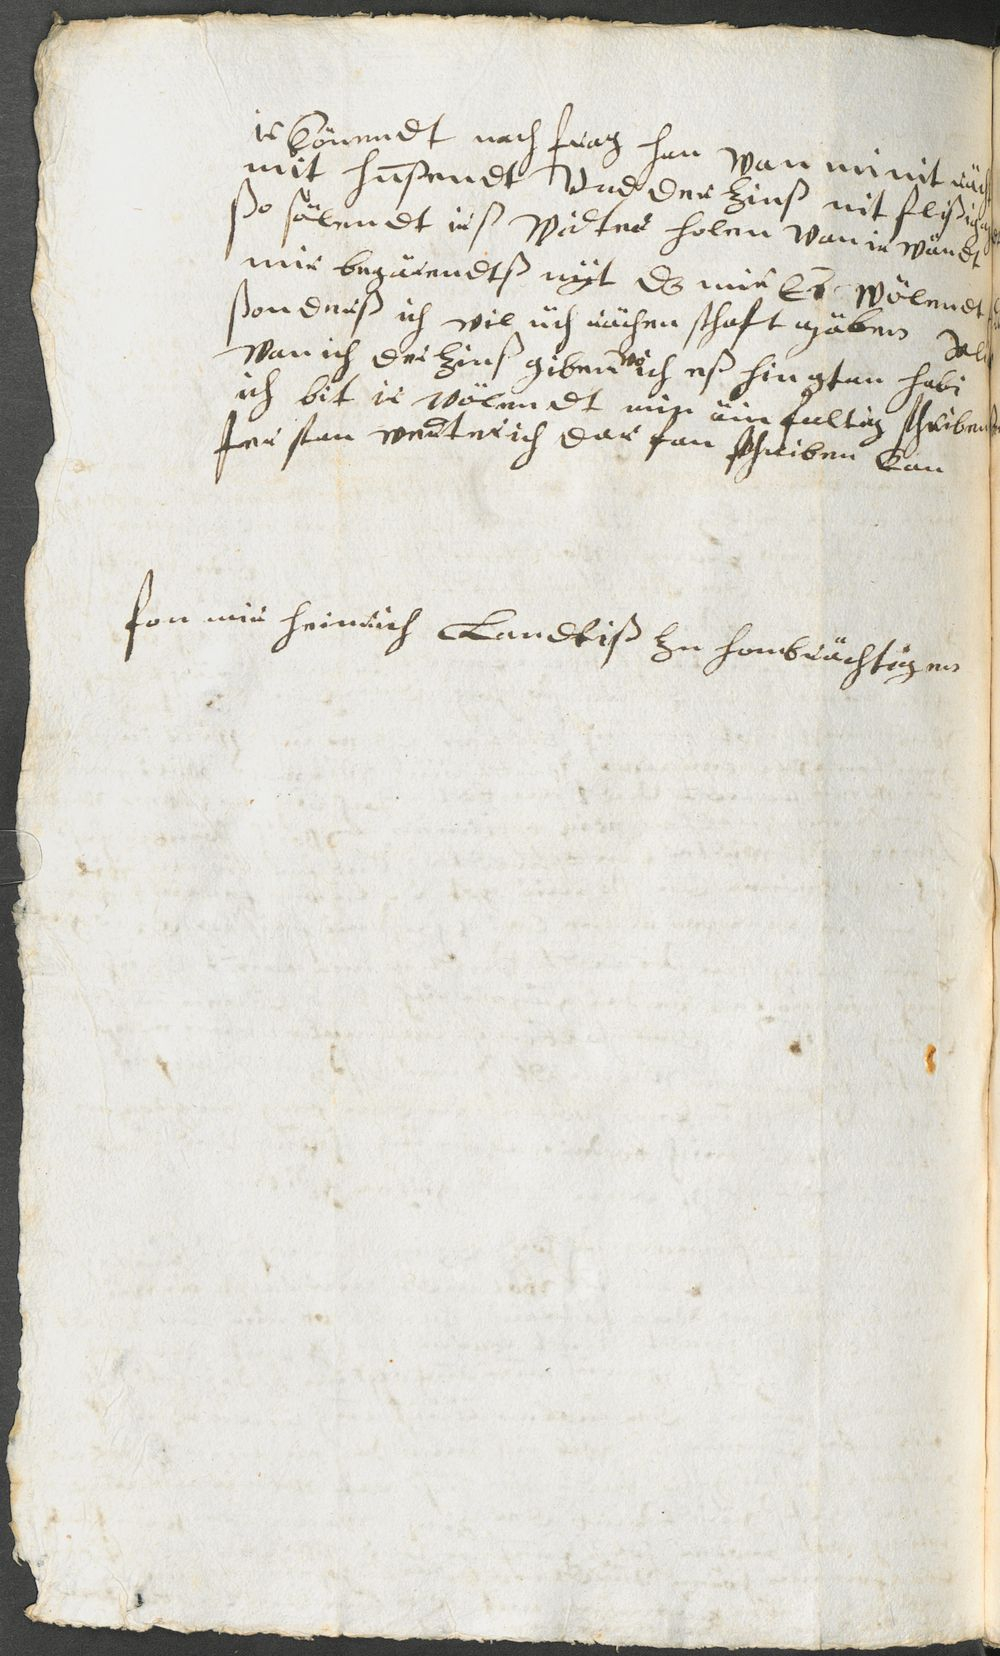 ir könendt nach frag han wan mir nit räch
mit husendt Und der zinß nit flißig
ßo sölendt irß widter holen wan ir wändt
mir begärendtß nüt dz mir Er wölendt
ßonderß ich wil üch rächen schaft gäben
wan ich der zinß giben wo ich eß hin gtan habi
ich bit ir wölendt min äinfaltig schriben
ferstan wedter ich dar fan schriben kan
fon mir heinrich Landtiß zu hombrächtigen